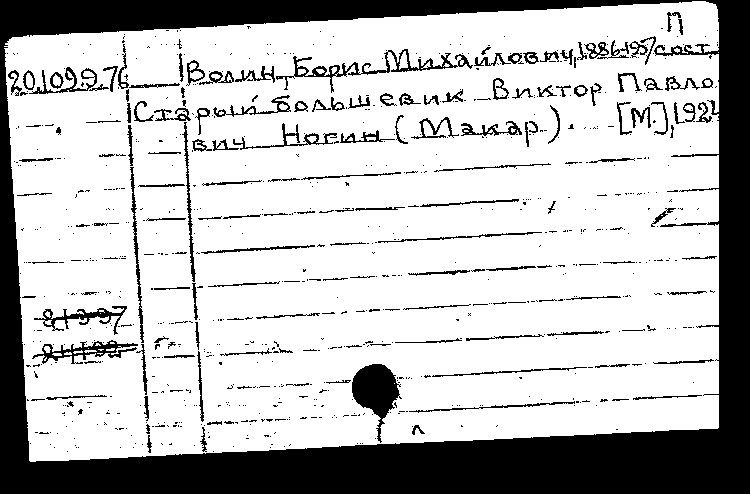 П
20.109.9.76 Волин, Борис Михайлович, 1886-1957, сост.
Старый большевик Виктор Павло
вич Ногин (Макар). [М.], 192
81397
84192